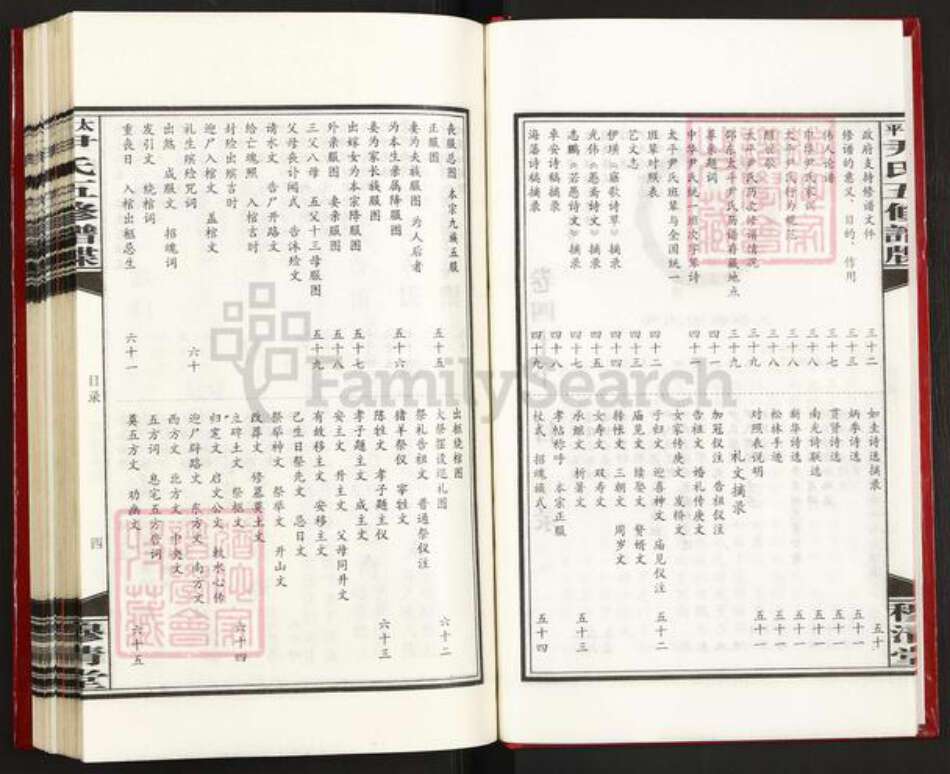 政府支持修谱文件 三十二
修谱的意义、目的、作用 三十三
伟人论谱 三十七
中华尹氏家 三十八
太平尹氏行为规范 三十八
照世歌 三十八
太平尹氏历次修谱情况 三十九
邵东太平尹氏历谱存藏地点 三十九
尊亲题词 四十一
中华尹氏统一班次字辈诗 四十一
太平尹氏班辈与全国统一
班辈对照表 四十二
艺文志 四十三
伊璜《庭歌诗草》摘录 四十四
光伟《愚斋诗文》摘录 四十五
志鹏《若愚诗文》摘录 四十七
卓安诗稿摘录 四十八
海藩诗稿摘录 四十九
如圭诗选摘录 五十
炳季诗选 五十一
贡贤诗选 五十一
南光诗联选 五十一
新华诗选 五十一
松林手迹
对照表说明 五十一
礼文摘录
加冠仪注 告祖仪注
告祖文 婚礼传庚文
女家传庚文 发轿文
子归文 迎喜神文 庙见仪注 五十二
庙见文 续娶文 赘婿文
转帐文 三朝文 周岁文
女寿文 双寿文
承继文 析箸文 五十三
孝帖称呼 本宗正服
杖式 招魂幡式 五十四
丧服总图 本宗九族五服
正服图 五十五
妻为夫族服图 为人后者
为本生亲属降服图 五十六
妾为家长族服图
出嫁女为本宗降服图 五十七
外亲服图 妻亲服图 五十八
三父八母 五父十三母服图 五十九
父母丧讣闻式 告沐殓文
请水文 告尸开路文
给亡魂照 入棺吉时
封殓出殡吉时
迎尸入棺文 盖棺文
礼生殡殓咒词 六十
出煞 成服文 招魂词
发引文 绕棺词
重丧日 入棺出柩忌生 六十一
出柩绕棺图
火祭摆设巡礼图 六十二
祭礼告祖文 普通祭仪注
猪羊祭仪 宰牲文
陈牲文 孝子题主仪 六十三
孝子题主文 成主文
安主文 升主文 父母同升文
有故移主文 安移主文
己生日祭先文 忌日文
祭草神文 祭草文 开山文
改葬文 修墓奠土文
立碑土文 祭柩文 六十四
归宅文 启文公文 敕水心传
迎尸辟路文 东方文 南方文
西方文 北方文 中央文
五方词 息宅五方君词
奠五方文 劝幽文 六十五
太平尹氏五修谱牒
目录
四